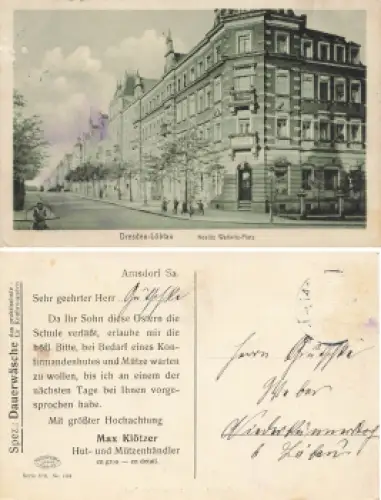 Dresden-Löbtau
Amsdorf Sa.
Sehr geehrter Herr
Da Ihr Sohn diese Ostern die
Schule verläßt, erlaube mir die
höfl. Bitte, bei Bedarf eines Kon-
firmandenhutes und Mütze warten
zu wollen, bis ich an einem der
nächsten Tage bei Ihnen vorge-
sprochen habe.
Mit größter Hochachtung
Max Klötzer
Hut- und Mützenhändler
en gros — en detail.
Spez.: Dauerwäsche
Herrn
Weber
b Löbau